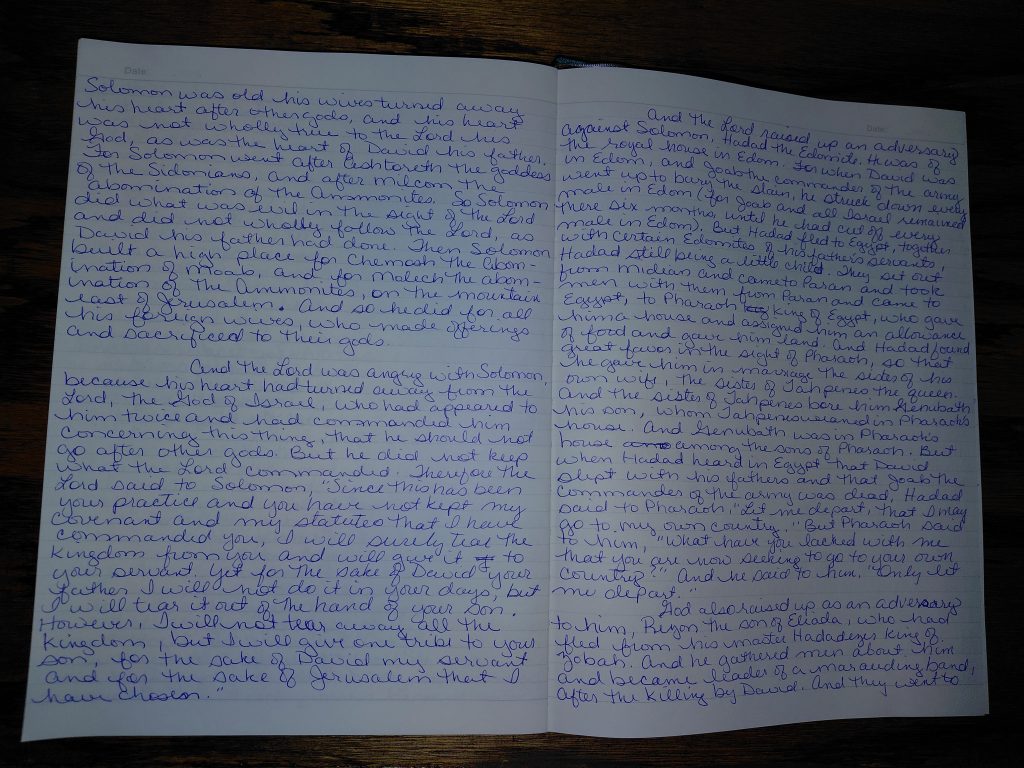 Date
Solomon was old his wives turned away
his heart after other gods, and his heart
was not wholly true to the Lord his
God, as was the heart of David his father.
For Solomon went after Ashtoreth the goddess
of the Sidonians, and after Milcom the
abomination of the Ammonites. So Solomon
did what was evil in the sight of the Lord
and did not wholly follow the Lord, as
David his father had done. Then Solomon
built a high place for Chemosh the abom-
ination of Moab, and for Molech the abom-
ination of the Ammonites, on the mountain
east of Jerusalem. And so he did for all
his foreign wives, who made offerings
and sacrificed to their gods.
And the Lord was angry with Solomon,
because his heart had turned away from the
Lord, the God of Israel, who had appeared to
him twice and had commanded him
concerning this thing, that he should not
go after other gods. But he did not keep
what the Lord commanded. Therefore the
Lord said to Solomon, "Since this has been
your practice and you have not kept my
covenant and my statutes that I have
commanded you, I will surely tear the
kingdom from you and will give it to
your servant. Yet for the sake of David your
father I will not do it in your days, but
I will tear it out of the hand of your son.
However, I will not tear away all the
kingdom, but I will give one tribe to your
son, for the sake of David my servant
and for the sake of Jerusalem that I
have chosen."
Date
And the Lord raised up an adversary
against Solomon, Hadad the Edomite. He was of
the royal house in Edom. For when David was
in Edom, and Joab the commander of the army
went up to bury the slain, he struck down every
male in Edom (for Joab and all Israel remained
there six months, until he had cut off every
male in Edom). But Hadad fled to Egypt, together
with certain Edomites of his father's servants,
Hadad still being a little child. They set out
from Midian and came to Paran and took
men with them from Paran and came to
Egypt, to Pharaoh king of Egypt, who gave
him a house and assigned him an allowance
of food and gave him land. And Hadad found
great favor in the sight of Pharaoh, so that
he gave him in marriage the sister of his
own wife, the sister of Tahpenes the queen.
And the sister of Tahpenes bore him Genubath
his son, whom Tahpenes weaned in Pharaoh's
house. And Genubath was in Pharaoh's
house among the sons of Pharaoh. But
when Hadad heard in Egypt that David
slept with his fathers and that Joab the
commander of the army was dead, Hadad
said to Pharaoh, "Let me depart, that I may
go to my own country." But Pharaoh said
to him, "What have you lacked with me
that you are now seeking to go to your own
country?" And he said to him, "Only let
me depart."
God also raised up as an adversary
to him, Rezon the son of Eliada, who had
fled from his master Hadadezer king of
Zobah. And he gathered men about him
and became leader of a marauding band,
after the killing by David. And they went to